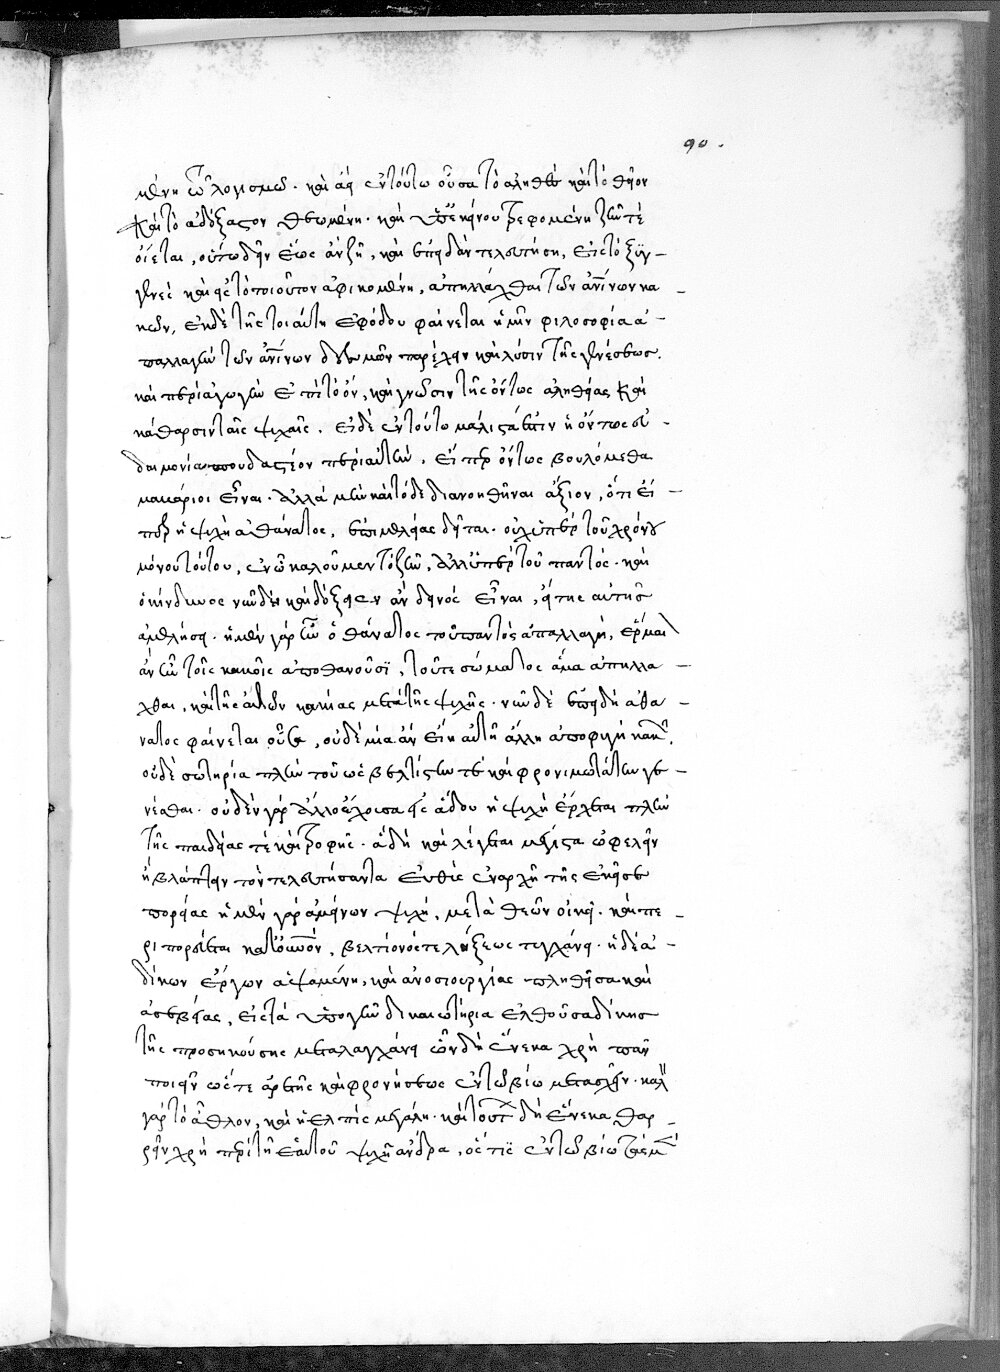 90.
μένη τῷ λογισμῷ. καὶ ἀεὶ ἐν τούτω οὖσα τὸ ἀληθὲς καὶ τὸ θεῖον
καὶ τὸ ἀδόξαστον θεωμένη. καὶ ὑπ' ἐκείνου τρεφομένη ζῆν τὲ
οἴεται, οὕτω δεῖν ἕως ἂν ζῆ, καὶ ἐπειδὰν τελευτήση, εἰς τὸ ξυγ-
γενὲς καὶ εἰς τὸ τοιοῦτον ἀφικομένη, ἀπηλλάχθαι τῶν ἀνθρωπίνων κα-
κῶν, ἐκ δὲ τῆς τοιαύτης ἐφόδου φαίνεται ἡμῖν φιλοσοφία ἀ-
παλλαγὴν τῶν ἀνθρωπίνων δεσμῶν παρέχειν καὶ λύσιν τῆς γενέσεως.
καὶ περιαγωγὴν ἐπὶ τὸ ὂν, καὶ γνῶσιν τῆς ὄντως ἀληθείας καὶ
κάθαρσιν ταῖς ψυχαῖς. εἰ δὲ ἐν τούτω μάλιστά ἐστιν ἡ ὄντως εὐ-
δαιμονία σπουδαστέον περὶ αὐτὴν, εἴπερ ὄντως βουλόμεθα
μακάριοι εἶναι. ἀλλὰ μὴν καὶ τόδε διανοηθῆναι ἄξιον, ὅτι εἴ-
περ ἡ ψυχὴ ἀθάνατος, ἐπιμελείας δεῖται. οὐχ ὑπὲρ τοῦ χρόνου
μόνου τούτου, ἐν ᾧ καλοῦμεν τὸ ζῆν, ἀλλ' ὑπὲρ τοῦ παντός. καὶ
ὁ κίνδυνος νῦν δὴ καὶ δόξειεν ἂν δεινὸς εἶναι, εἴ τις αὐτῆς
ἀμελήσει. εἰ μὲν γὰρ ἦν ὁ θάνατος τοῦ παντὸς ἀπαλλαγὴ, ἕρμαιον
ἂν ἦν τοῖς κακοῖς ἀποθανοῦσι, τοῦ τε σώματος ἅμα ἀπηλλά-
χθαι, καὶ τῆς αὐτῶν κακίας μετὰ τῆς ψυχῆς. νῦν δὲ ἐπειδὴ ἀθά-
νατος φαίνεται οὖσα, οὐδεμία ἂν εἴη αὐτῆ ἄλλη ἀποφυγὴ κακῶν,
οὐδὲ σωτηρία πλὴν τοῦ ὡς βελτίστην τὲ καὶ φρονιμωτάτην γε-
νέσθαι. οὐδὲν γὰρ ἄλλο ἔχουσα εἰς ἅδου ἡ ψυχὴ ἔρχεται πλὴν
τῆς παιδείας τὲ καὶ τροφῆς. ἃ δὴ καὶ λέγεται μέγιστα ὠφελεῖν
ἢ βλάπτειν τὸν τελευτήσαντα εὐθὺς ἐν ἀρχῆ τῆς ἐκεῖσε
πορείας ἡ μὲν γὰρ ἀμείνων ψυχή, μετὰ θεῶν οἰκεῖ. καὶ πε-
ριπορεύεται κατ' οὐρανόν, βελτίονός τε λήξεως τυγχάνει. ἡ δὲ ἀ-
δίκων ἔργων ἁψαμένη, καὶ ἀνοσιουργίας πλησθεῖσα καὶ
ἀσεβείας, εἰς τὰ ὑπὸ γῆν δικαιωτήρια ἐλθοῦσα δίκης
τῆς προσηκούσης μεταλαγχάνει ὧν δὴ ἕνεκα χρὴ πᾶν
ποιεῖν ὥστε ἀρετῆς καὶ φρονήσεως ἐν τῶ βίω μετασχεῖν. καλὸν
γὰρ τὸ ἆθλον, καὶ ἡ ἐλπὶς μεγάλη. καὶ τούτων δὴ ἕνεκα θαρ-
ρεῖν χρὴ περὶ τῆ ἑαυτοῦ ψυχῆ ἄνδρα, ὅς τις ἐν τῶ βίω τὰς μὲν